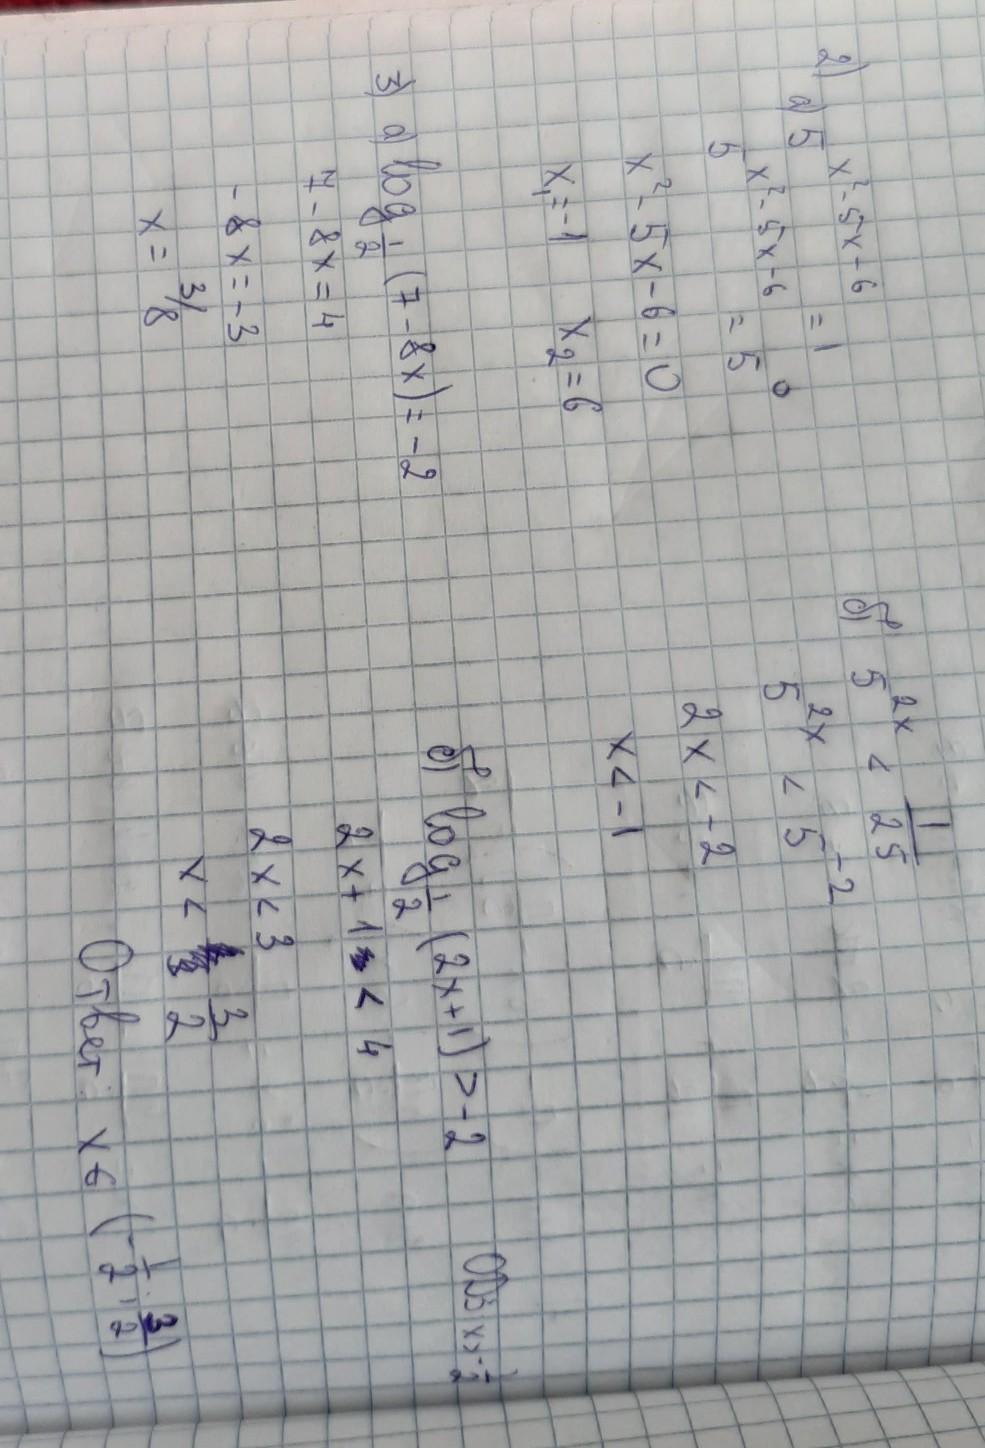 2) а) 5^(x²-5x-6) = 1
5^(x²-5x-6) = 5^0
x²-5x-6=0
x₁=-1 x₂=6
б) 5^(2x) < 1/25
5^(2x) < 5^(-2)
2x<-2
x<-1
3) а) log_(1/2) (7-8x)=-2
7-8x=4
-8x=-3
x= 3/8
б) log_(1/2) (2x+1)>-2 ОДЗ x>-1/2
2x+1<4
2x<3
x< 3/2
Ответ: x∈ (-1/2; 3/2)